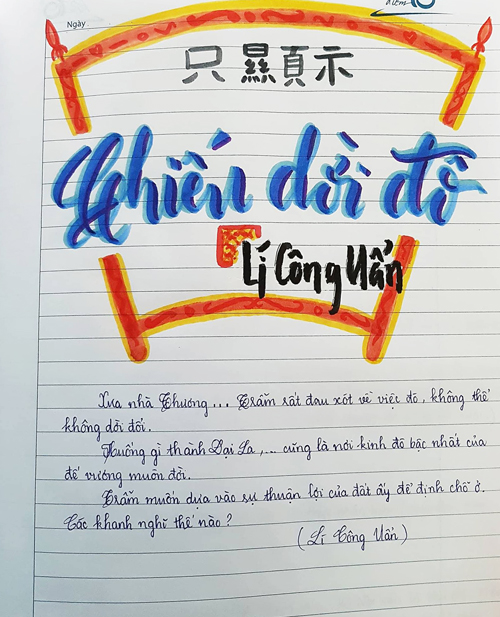 Ngày
điểm 10
只顯示
Chiếu dời đô
Lí Công Uẩn
Xưa nhà Thương... Trẫm rất đau xót về việc đó, không thể
không dời đổi.
Huống gì thành Đại La,... cũng là nơi kinh đô bậc nhất của
đế vương muôn đời.
Trẫm muốn dựa vào sự thuận lợi của đất ấy để định chỗ ở.
Các khanh nghĩ thế nào?
(Lí Công Uẩn)